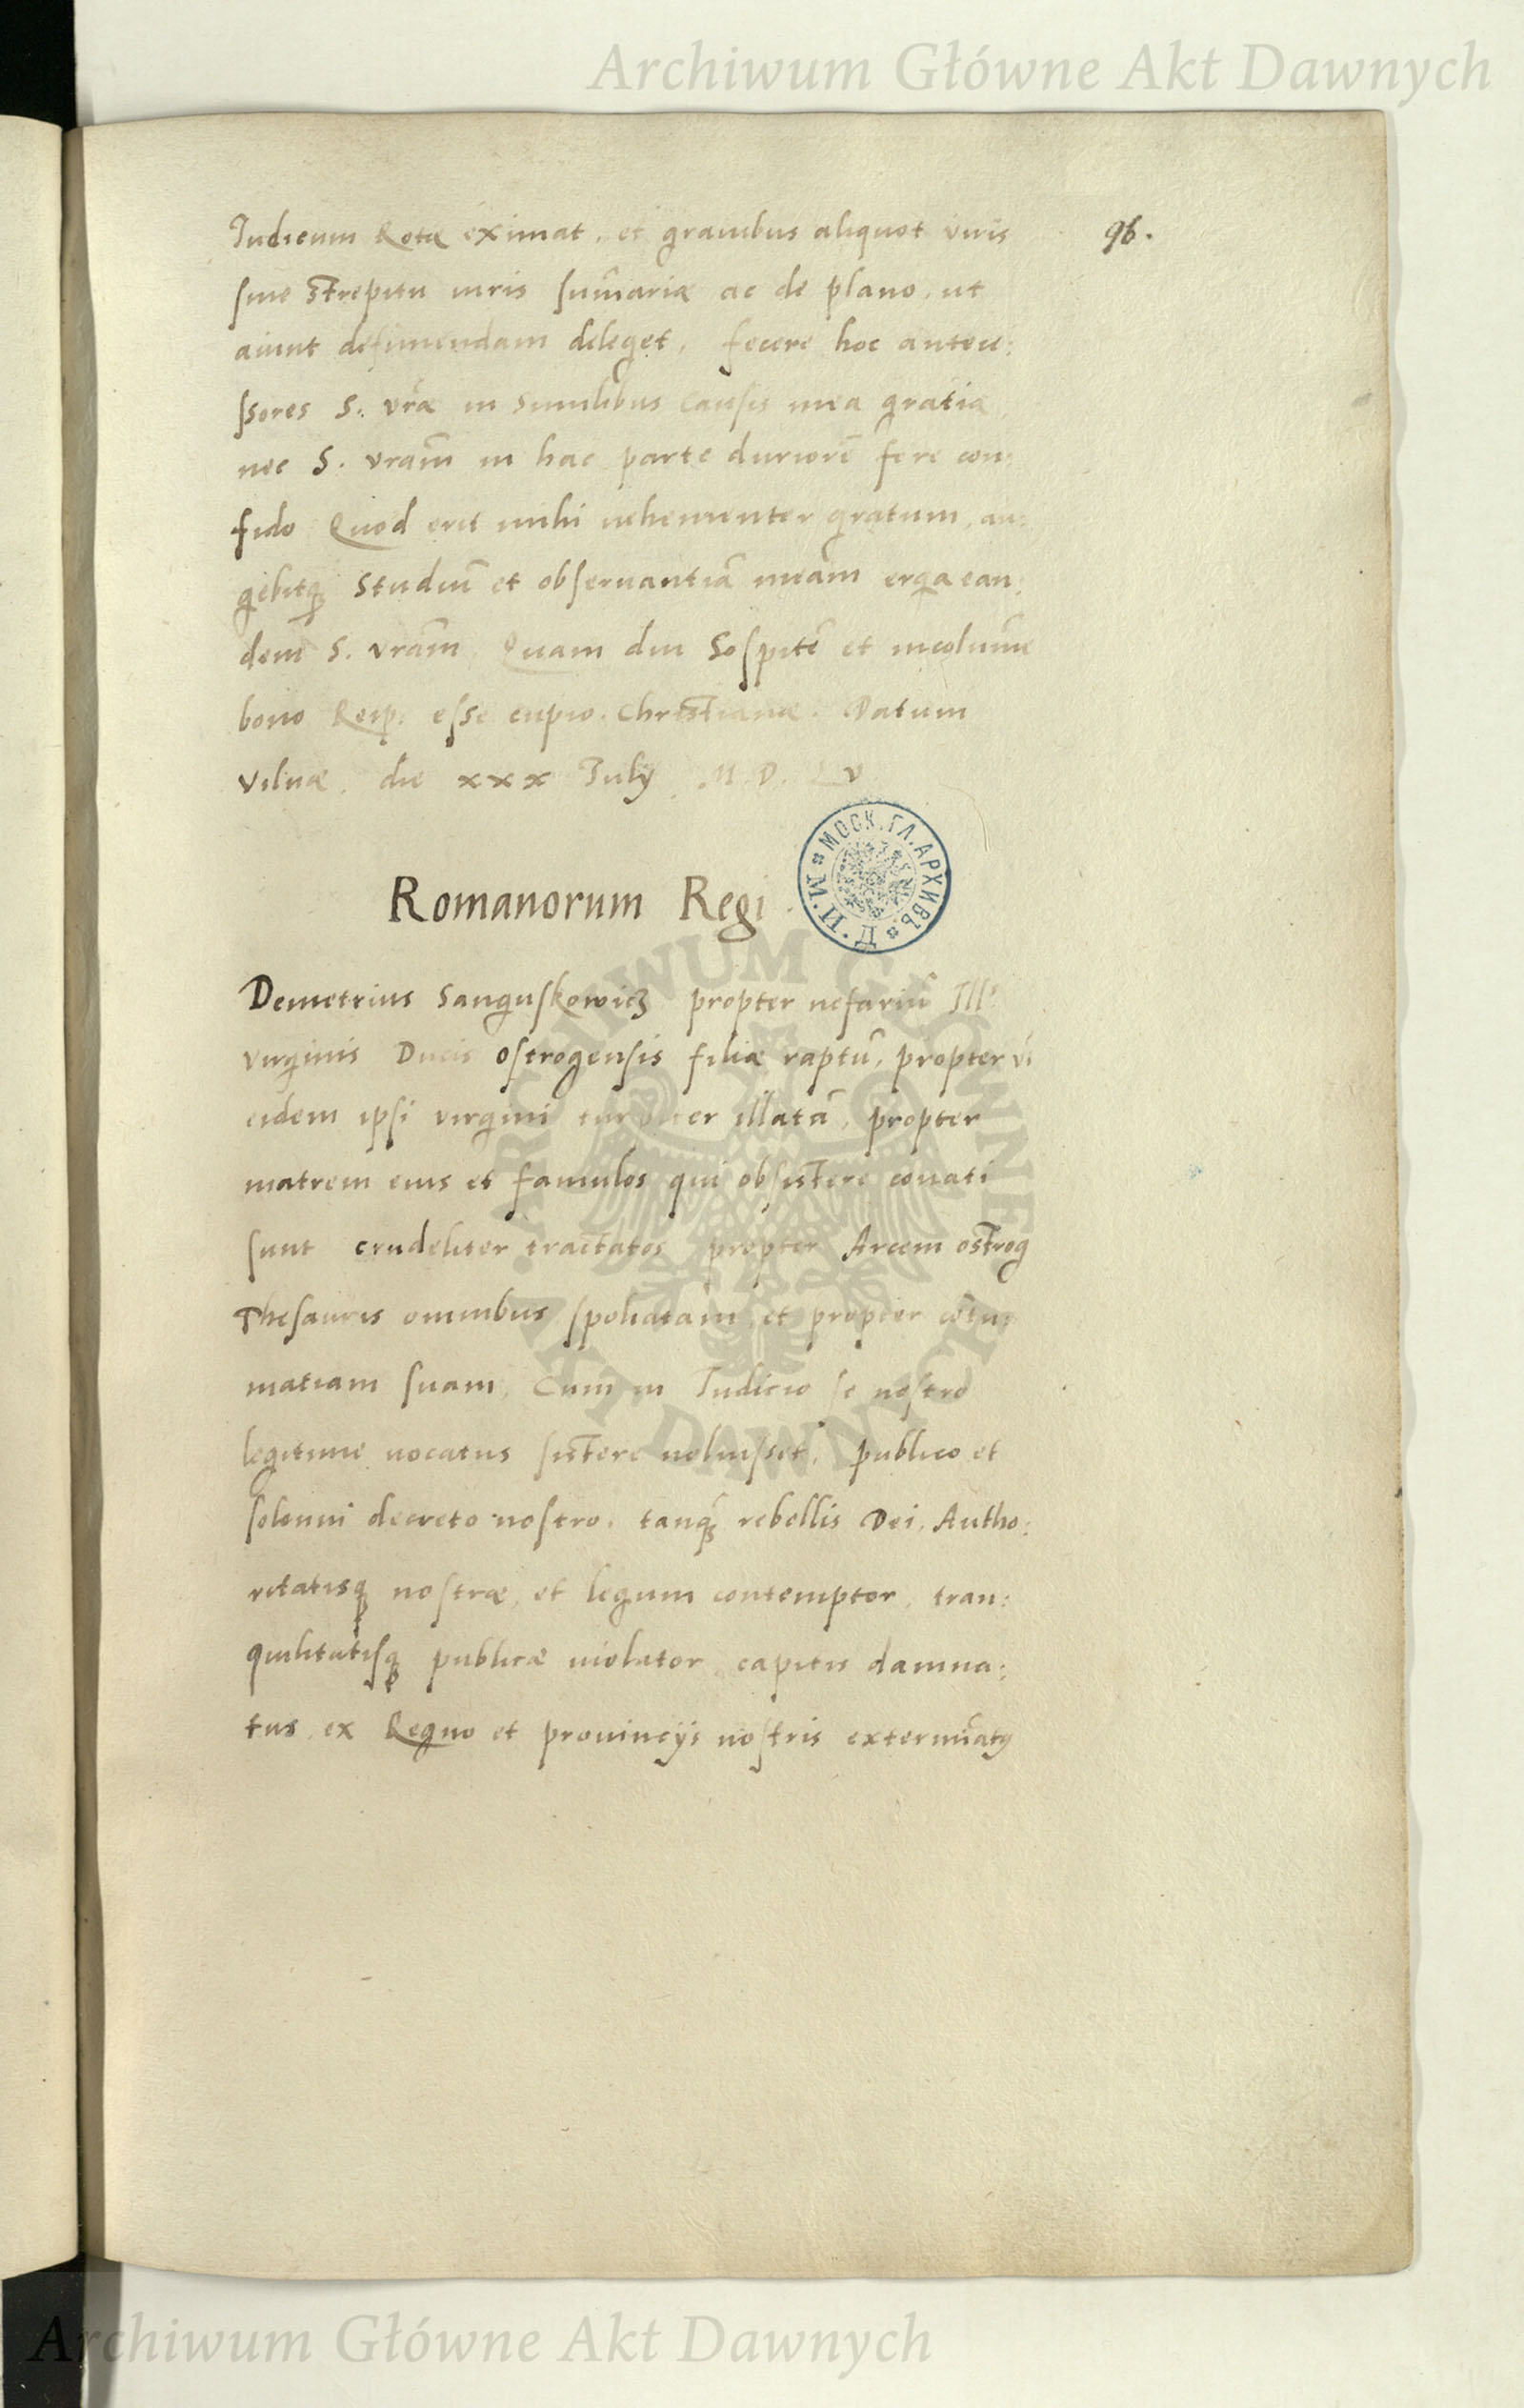 Archiwum Główne Akt Dawnych
96.
Iudicum Rotæ eximat, et grauibus aliquot viris
sine strepitu iuris sum̃ariæ ac de plano, ut
aiunt definiendam deleget, fecere hoc antece:
ssores S. vr̃æ in similibus causis mea gratia,
nec S. vram̃ in hac parte duriorẽ fore con:
fido Quod erit mihi uehementer gratum, au:
gebitq; Studiũ et obseruantiã meam̃ erga ean:
dem S. vram̃ Quam diu Sospitẽ et incolumẽ
bono Reip. esse cupio. Christianæ. Datum
Vilnæ. die xxx July M. D. L v
МОСК. ГЛ. АРХИВЪ М. И. Д.
Romanorum Regi
Demetrius Sanguskowicz propter nefariũ Ill:
virginis Ducis ostrogensis filiæ raptũ, propter vĩ
eidem ipsi virgini turpiter illatã, propter
matrem eius et famulos qui obsistere conati
sunt crudeliter tractatos propter Arcem ostrog
Thesauris omnibus spoliatam et propter cõtu:
matiam suam, Cum in Iudicio se nostro
legitime uocatus sistere noluisset, publico et
solenni decreto nostro, tanq; rebellis Dei, Autho:
ritatisq; nostræ, et legum contemptor, tran:
quilitatisq; publicæ uiolator capitis damna:
tus, ex Regno et prouincijs nostris extermĩatus
ARCHIWUM GŁÓWNE AKT DAWNYCH
Archiwum Główne Akt Dawnych